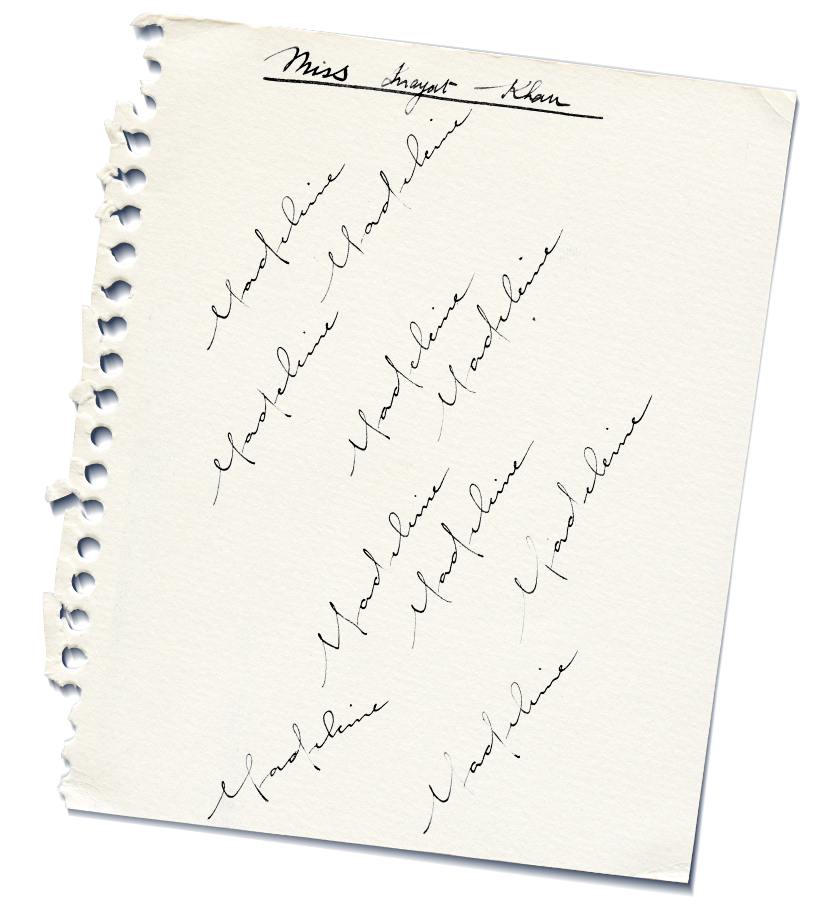 Miss Inayat-Khan
Madeleine
Madeleine
Madeleine
Madeleine
Madeleine
Madeleine
Madeleine
Madeleine
Madeleine
Madeleine